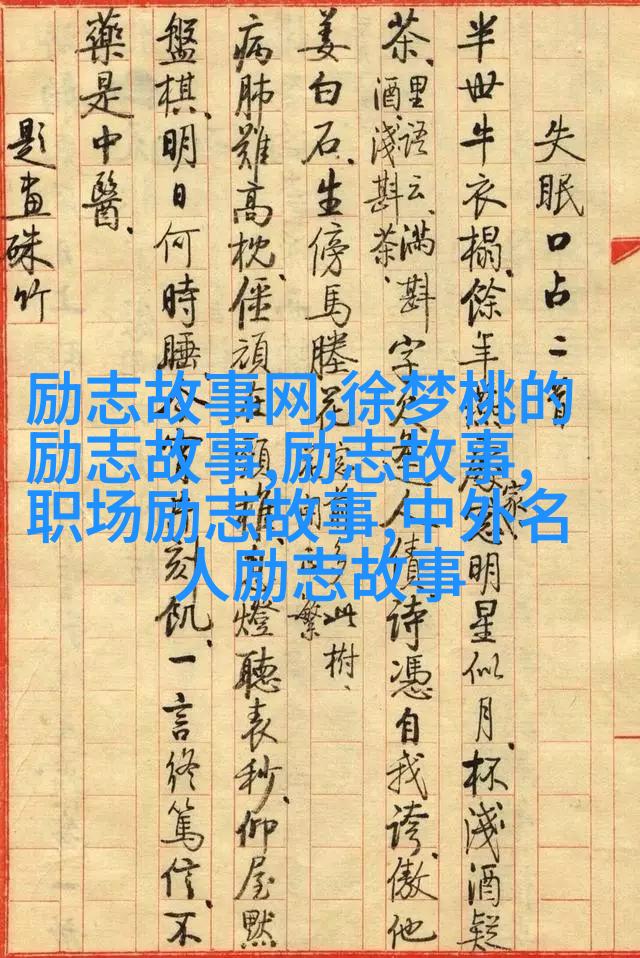 失眠口占二首
半世牛衣榻、餘年 家、明星似月、杯淺酒疑
茶、里語云、滿斟酒、淺斟茶、字 是人債、詩憑自我誇、傲他
姜白石、生傍馬塍花、 多此樹、 繁
病肺難高枕、僵頑在頸椎、 燈聽表秒、仰屋默
盤棋、明日何時睡、 刻飢、一言終篤信、不
藥是中醫、
題畫硃竹
励志故事网,徐梦桃的
励志故事,励志故事,
职场励志故事,中外名
人励志故事